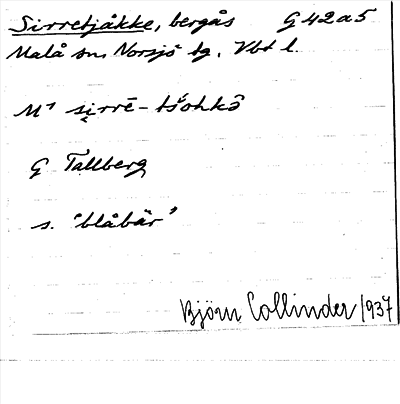 Sirretjåkke, bergås G 42 a 5
Malå sn, Norsjö tg. Vbt l.
M¹ si̮rrē-tšohkō
G Tallberg
s. "blåbär"
Björn Collinder 1937